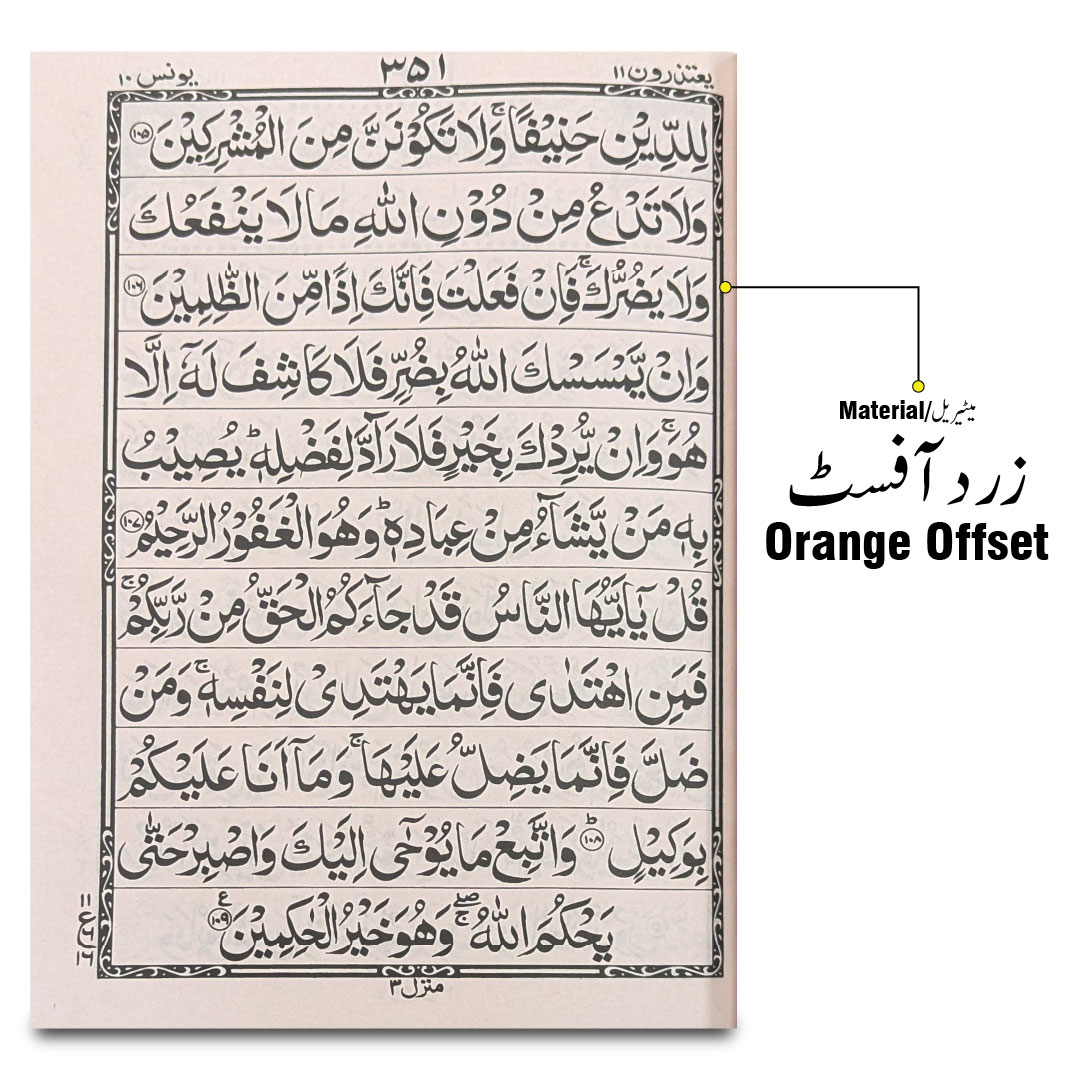 یعتذرون ۱۱
۳۵۱
یونس ۱۰
لِلدِّیْنِ حَنِیْفًا ۚ وَلَا تَكُوْنَنَّ مِنَ الْمُشْرِكِیْنَ ۱۰۵
وَلَا تَدْعُ مِنْ دُوْنِ اللّٰهِ مَا لَا یَنْفَعُكَ
وَلَا یَضُرُّكَ ۚ فَاِنْ فَعَلْتَ فَاِنَّكَ اِذًا مِّنَ الظّٰلِمِیْنَ ۱۰۶
وَاِنْ یَّمْسَسْكَ اللّٰهُ بِضُرٍّ فَلَا كَاشِفَ لَهٗۤ اِلَّا
هُوَ ۚ وَاِنْ یُّرِدْكَ بِخَیْرٍ فَلَا رَآدَّ لِفَضْلِهٖ ؕ یُصِیْبُ
بِهٖ مَنْ یَّشَآءُ مِنْ عِبَادِهٖ ؕ وَهُوَ الْغَفُوْرُ الرَّحِیْمُ ۱۰۷
قُلْ یٰۤاَیُّهَا النَّاسُ قَدْ جَآءَكُمُ الْحَقُّ مِنْ رَّبِّكُمْ ۚ
فَمَنِ اهْتَدٰی فَاِنَّمَا یَهْتَدِیْ لِنَفْسِهٖ ۚ وَمَنْ
ضَلَّ فَاِنَّمَا یَضِلُّ عَلَیْهَا ۚ وَمَاۤ اَنَا عَلَیْكُمْ
بِوَكِیْلٍ ؕ ۱۰۸ وَاتَّبِعْ مَا یُوْحٰۤی اِلَیْكَ وَاصْبِرْ حَتّٰی
یَحْكُمَ اللّٰهُ ۖۚ وَهُوَ خَیْرُ الْحٰكِمِیْنَ ۱۰۹ ع
منزل ۳
Material/میٹیریل
زرد آفسٹ
Orange Offset